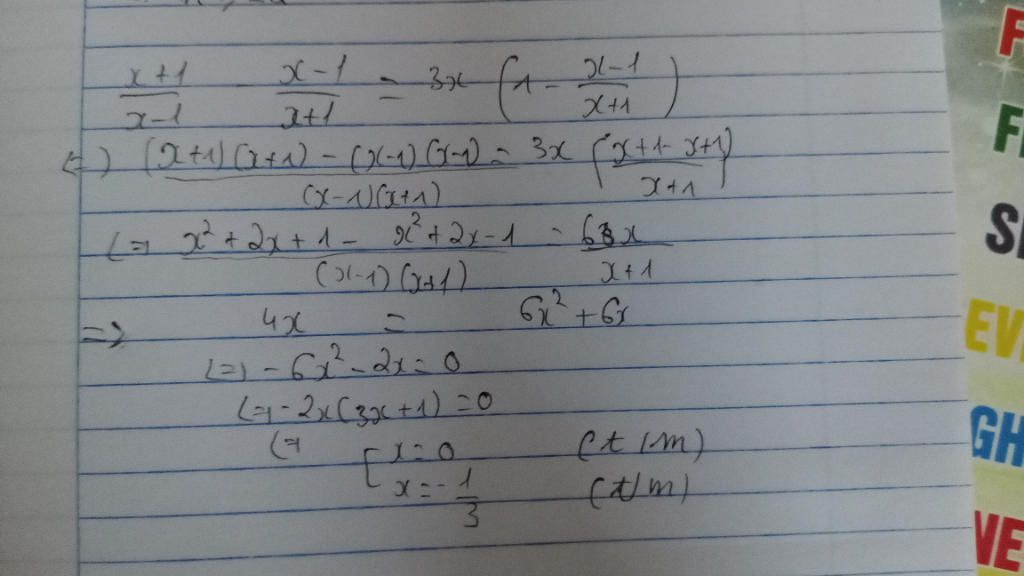 x+1/x-1 - x-1/x+1 = 3x (1 - x-1/x+1)
(=) (x+1)(x+1) - (x-1)(x-1)/(x-1)(x+1) = 3x (x+1-x+1/x+1)
(=) x² + 2x + 1 - x² + 2x - 1/(x-1)(x+1) = 6x/x+1
=> 4x = 6x² + 6x
(=) - 6x² - 2x = 0
(=) - 2x(3x+1) = 0
(=) [ x = 0 (t/m)
x = - 1/3 (t/m)
F
F
S
EV
GH
VE